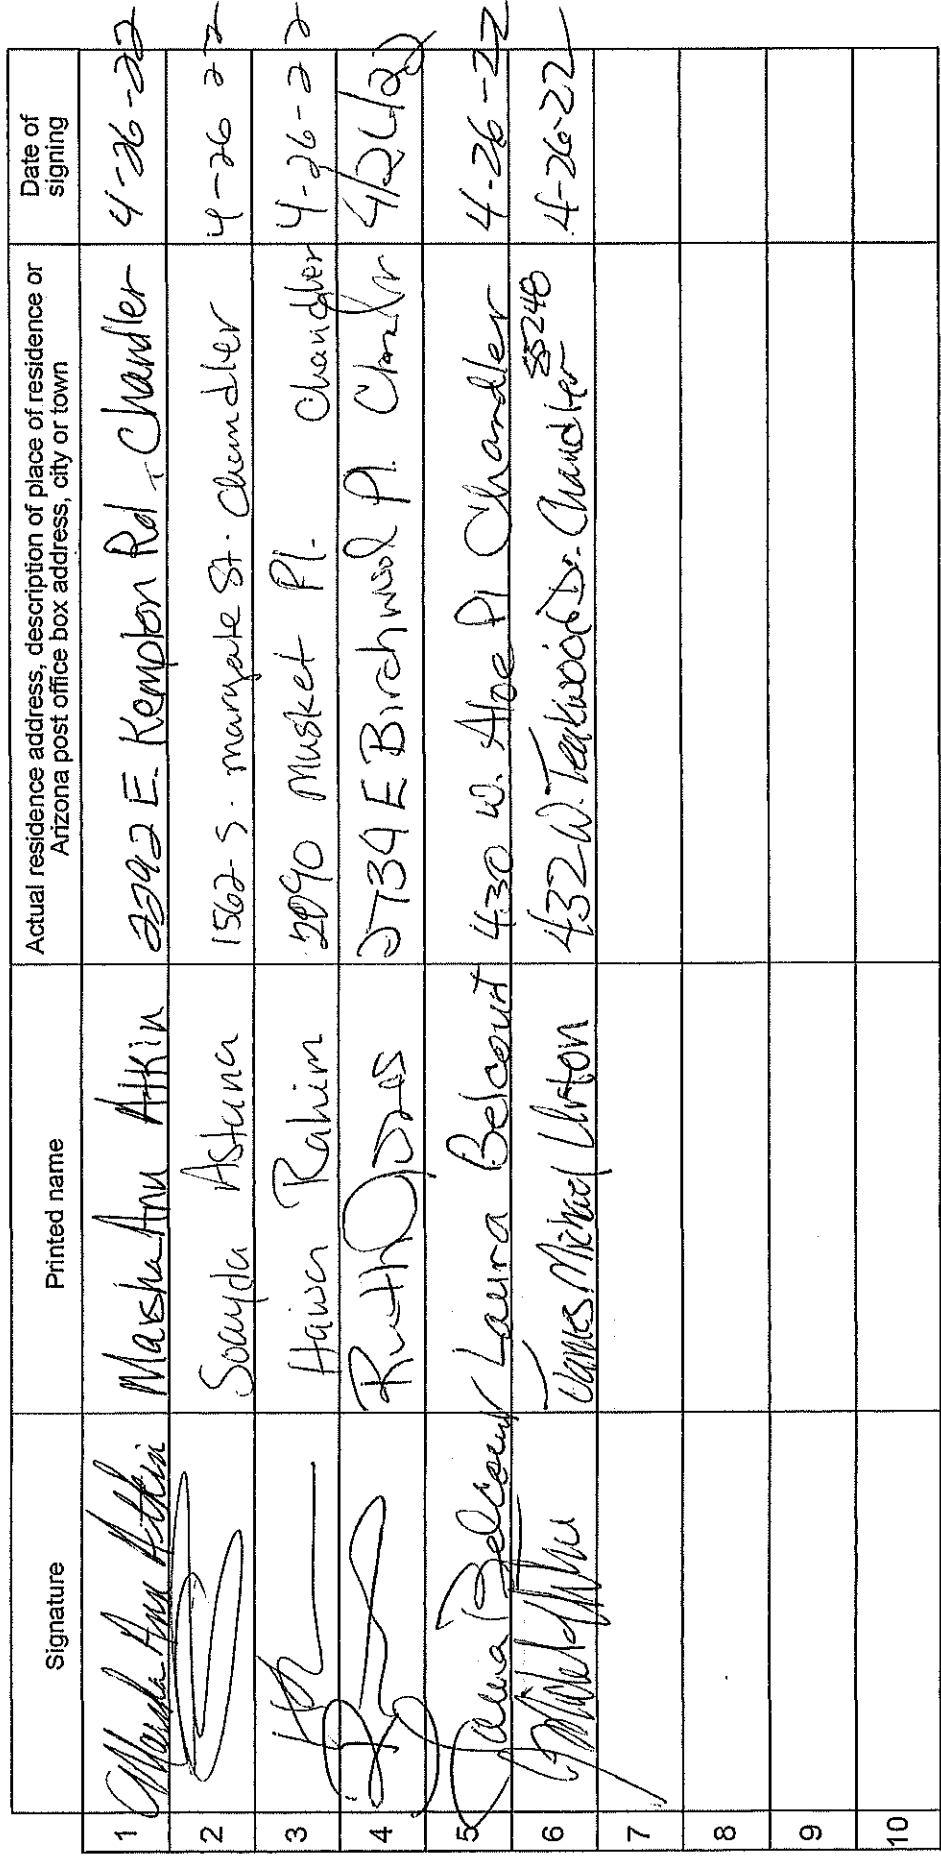 Signature
Printed name
Actual residence address, description of place of residence or
Arizona post office box address, city or town
Date of
signing
1 Marsha Ann Atkin Marsha Ann Atkin 2292 E. Kempton Rd, Chandler 4-26-22
2 Soayda Astana 1562 S. margate St. Chandler 4-26 22
3 Hawa Rahim 2090 Musket Pl. Chandler 4-26-22
4 Ruth 2734 E Birchwood Pl. Chandler
5 Laura Belcourt Laura Belcourt 430 W. Aloe Pl Chandler 4-26-22
6 James Michael 432 W. Teakwood Dr. Chandler 85248 4-26-22
7
8
9
10